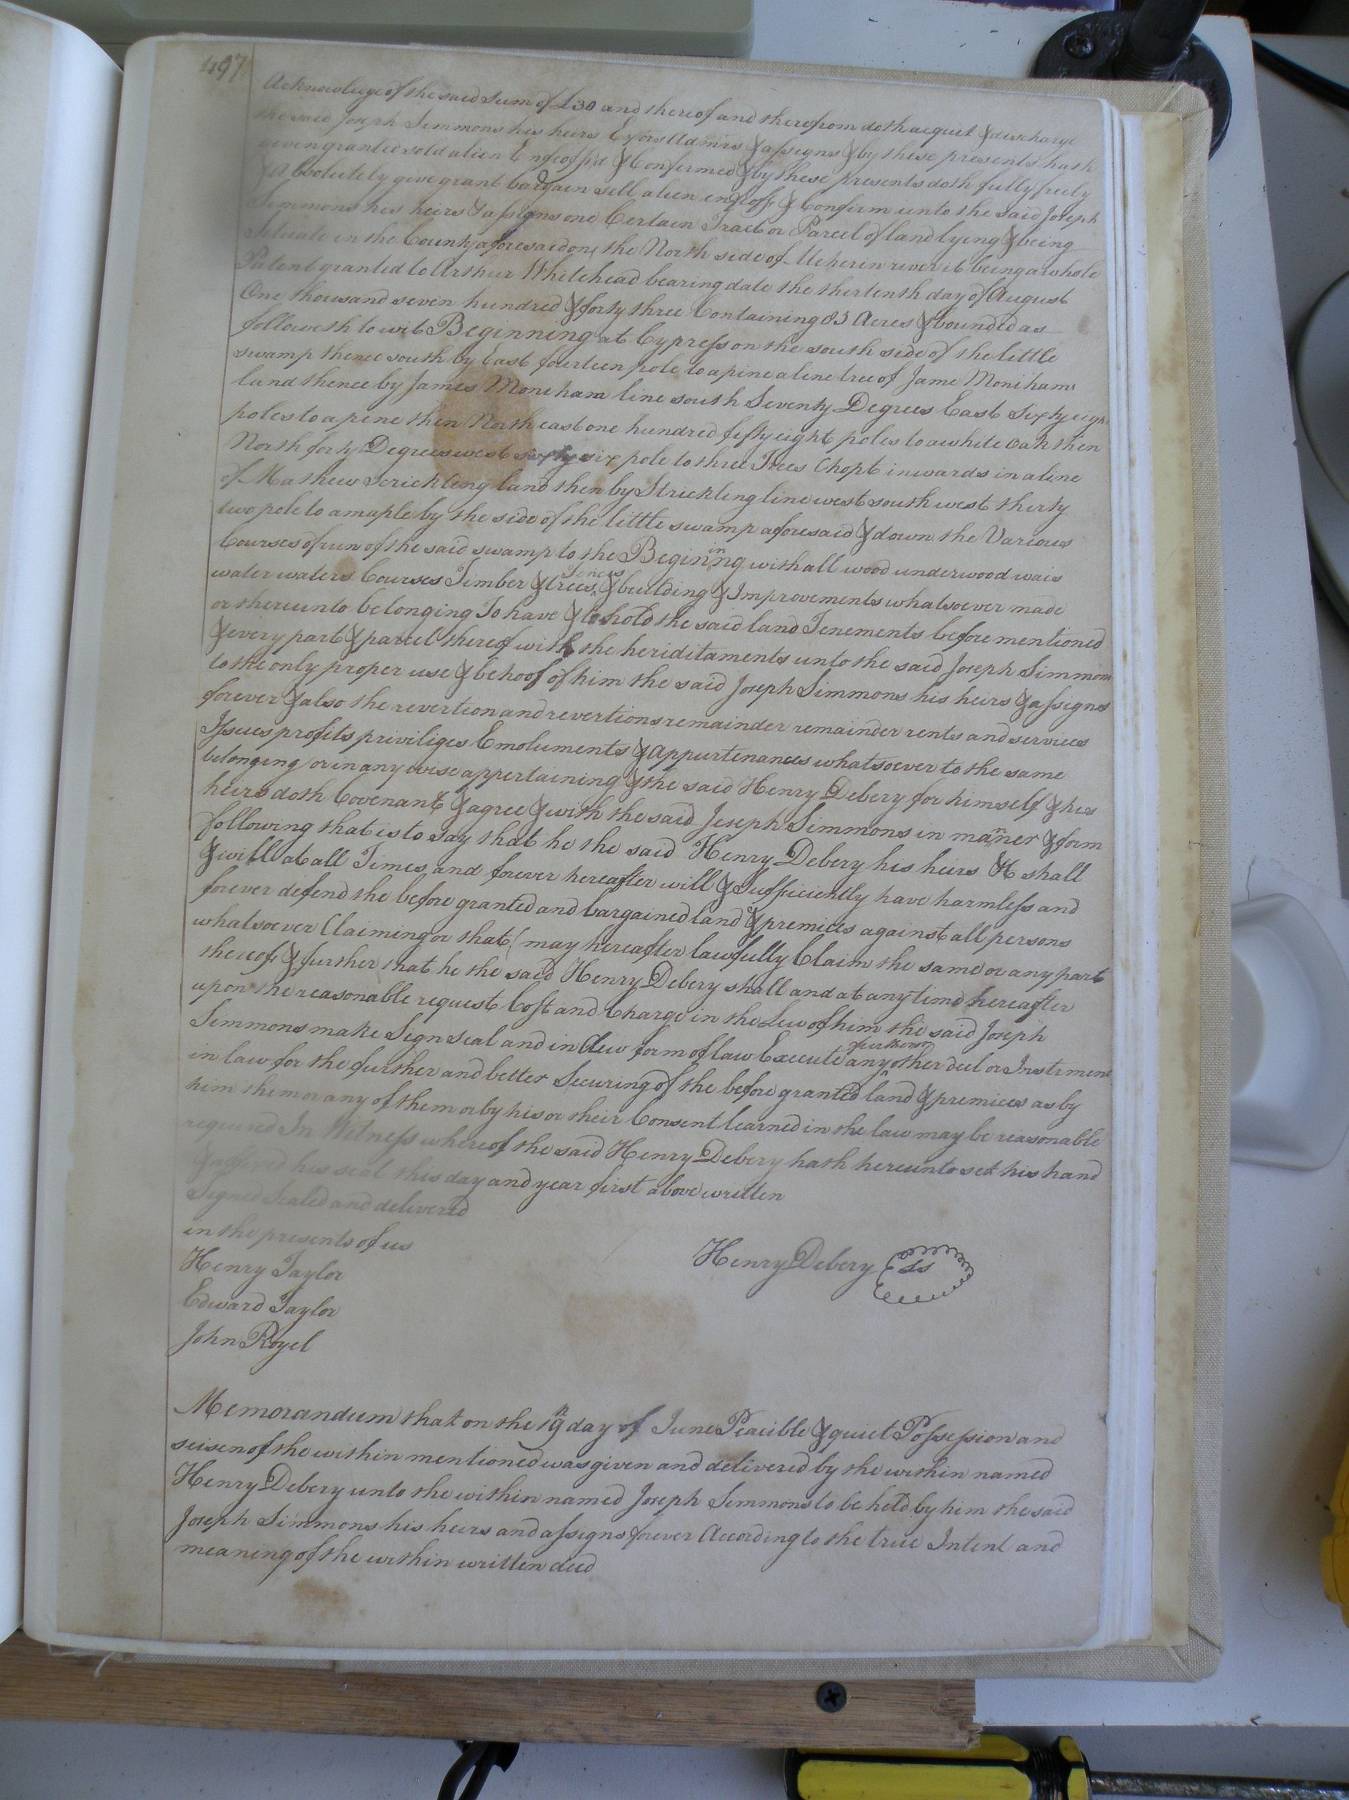 497
Acknowlege of the said Sum of £30 and thereof and therefrom doth acquit & discharge
the said Joseph Simmons his heirs Exors Admrs & assigns & by these presents hath
given granted sold alien Enfeoffed & Confirmed & by these presents doth fully freely
& Absolutely give grant bargain sell alien enfeoff & Confirm unto the said Joseph
Simmons his heirs & assigns one Certain Tract or Parcel of land lying & being
Situate in the County aforesaid on the North side of Meherin river it being a whole
Patent granted to Arthur Whitehead bearing date the thertenth day of August
One thousand seven hundred & forty three Containing 85 Acres & bounded as
followeth to wit Beginning at Cypress on the south side of the little
swamp thence south by East fourteen pole to a pine a line tree of Jame Moniham
land thence by James Moneham line south Seventy Degrees East Sixty eight
poles to a pine then North east one hundred fifty eight poles to a white oak then
North forty Degrees west sixty six pole to three Trees Chopt inwards in a line
of Mathew Strickling land then by Strickling line west south west therty
two pole to a maple by the side of the little swamp aforesaid & down the Various
Courses of run of the said swamp to the Begining with all wood underwood wais
water waters Courses Timber & trees fences & building & Improvements whatsoever made
or thereunto belonging To have & to hold the said land Tenements before mentioned
& every part & parcel thereof with the heriditaments unto the said Joseph Simmons
to the only proper use & behoof of him the said Joseph Simmons his heirs & assigns
forever & also the revertion and revertions remainder remainder rents and services
Issues profits priviliges Emoluments & Appurtenances whatsoever to the same
belonging or in any wise appertaining & the said Henry Debery for himself & his
heirs doth Covenant & agree & with the said Joseph Simmons in manner & form
following that is to say that he the said Henry Debery his heirs & shall
& will at all Times and forever hereafter will & Sufficiently have harmless and
forever defend the before granted and bargained land & premices against all persons
whatsoever Claiming or that may hereafter lawfully Claim the same or any part
thereof & further that he the said Henry Debery shall and at any time hereafter
upon the reasonable request Cost and Charge in the Lew of him the said Joseph
Simmons make Sign seal and in dew form of law Execute any further other deed or Instrment
in law for the further and better Securing of the before granted land & premices as by
him them or any of them or by his or their Consent learned in the law may be reasonable
required In Witness whereof the said Henry Debery hath hereunto set his hand
& affixed his seal this day and year first above written
Signed Sealed and delivered
in the presents of us
Henry Taylor
Henry Debery SS
Edward Taylor
John Royel
Memorandum that on the 19th day of June Peacible & quiet Possession and
seisen of the within mentioned was given and delivered by the within named
Henry Debery unto the within named Joseph Simmons to be held by him the said
Joseph Simmons his heirs and assigns forever According to the true Intent and
meaning of the within written deed